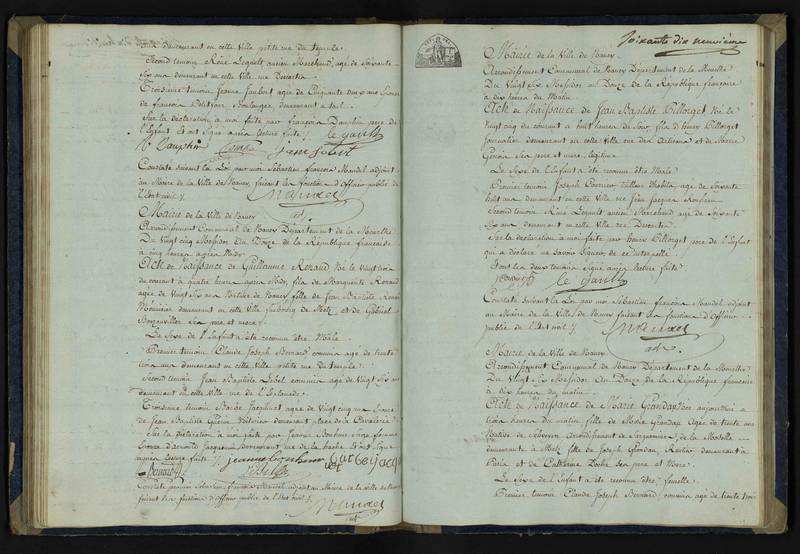 demeurant en cette Ville petite rue du temple.
Second temoin René Lequilt ancien Marchand, agé de Soixante
Six ans demeurant en cette Ville rue Descartes
Troisieme temoin Jeanne Jaubert agée de Cinquante deux ans Epouse
de françois Boulanger, demeurant a
Sur la déclaration a moi faite par françois Dauphin pere de
l'Enfant et ont Signé après lecture faite
Dauphin
Constaté Suivant la Loi par moi Sébastien françois Mandel adjoint
au Maire de la Ville de Nancy faisant les fonctions d'Officier public de
l'Etat civil
Mandel
adj.
Mairie de la Ville de Nancy
Arrondissement Communal de Nancy Département de la Meurthe
Du Vingt cinq Messidor An Douze de la République française
à cinq heures après Midy
Acte de Naissance de Guillaume Renaud Né le Vingt trois
du courant à quatre heures après Midy, fils de Marguerite Renaud
agée de Vingt Six ans Native de Nancy fille de Jean Baptiste Renaud
Menuisier demeurant en cette Ville faubourg de Metz et de Gabriel
ses pere et mere.
Le Sexe de l'Enfant a été reconnu être Mâle
Premier temoin Claude Joseph Bernard commis agé de trente
trois ans demeurant en cette Ville petite rue du temple
Second temoin Jean Baptiste Lebel commis agé de Vingt Six ans
demeurant en cette Ville rue de l'Esplanade.
Troisieme temoin Barbe Jacquot agée de Vingt cinq ans Epouse
de Jean Baptiste demeurant place de la Cavalerie
Sur la déclaration a moi faite par Jeanne Bonhome Sage femme
demeurant rue de la hache et ont Signé
après lecture faite jeanne bonhome barbe jacq
Bernard
Constaté par moi Sébastien françois Mandel adjoint au Maire de la Ville de Nancy
faisant les fonctions d'Officier public de l'Etat civil
Mandel
adj
Soixante dix neuvieme
Mairie de la Ville de Nancy
Arrondissement Communal de Nancy Département de la Meurthe
Du Vingt Six Messidor an Douze de la République française
à dix heures du Matin
Acte de Naissance de Jean Baptiste Pillorget Né le
Vingt cinq du courant à huit heures du Soir, fils d'henry Pillorget
Journalier demeurant en cette Ville rue des Artisans et de Marie
ses pere et mere, légitime
Le Sexe de l'Enfant a été reconnu être Mâle
Premier temoin Joseph tailleur d'habits, agé de Soixante
huit ans demeurant en cette Ville rue Jean Jacques Rousseau
Second temoin René Lequilt ancien Marchand agé de Soixante
Six ans demeurant en cette Ville rue Descartes
Sur la déclaration a moi faite par henry Pillorget pere de l'Enfant
qui a déclaré ne savoir Signer de ce interpellé
Et ont les deux temoins Signé après lecture faite
Constaté Suivant la Loi par moi Sébastien françois Mandel adjoint
au Maire de la Ville de Nancy faisant les fonctions d'Officier
public de l'Etat civil
Mandel
adj.
Mairie de la Ville de Nancy
Arrondissement Communal de Nancy Département de la Meurthe
Du Vingt Six Messidor An Douze de la République française
à dix heures du matin
Acte de Naissance de Marie Granday Née aujourd'hui à
trois heures du matin fille de Marie Granday agée de trente ans
Native de arrondissement de Sarguemines, de la Moselle
demeurante à Metz fille de Joseph Granday Rentier demeurant à
Paris et de Catherine Roche ses pere et mere.
Le Sexe de l'Enfant a été reconnu être femelle
Premier temoin Claude Joseph Bernard, commis agé de trente trois